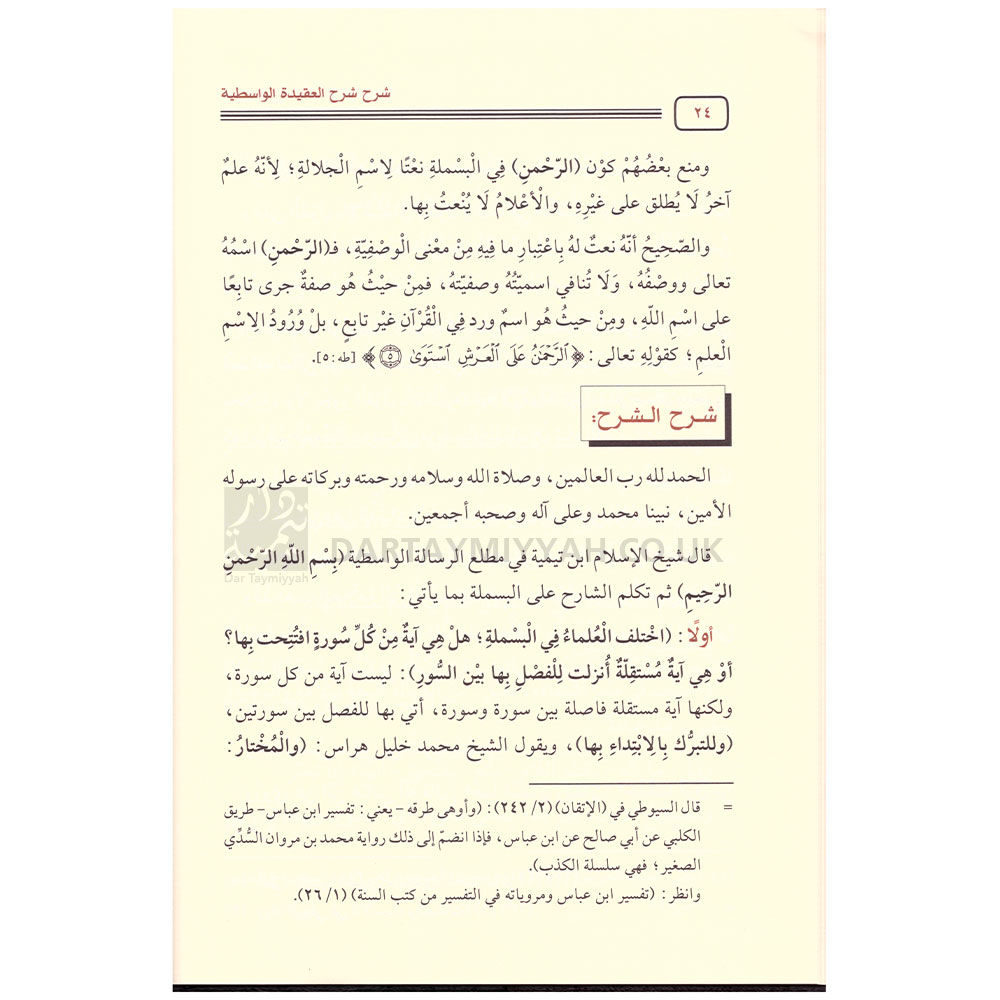 شرح شرح العقيدة الواسطية
٢٤
ومنع بعْضُهُمْ كوْن (الرّحْمنِ) فِي الْبسْملةِ نعْتًا لِاسْمِ الْجلالةِ؛ لِأنّهُ علمٌ
آخرُ لَا يُطْلق على غيْرِهِ، والْأعْلامُ لَا يُنْعتُ بِها.
والصّحِيحُ أنّهُ نعتٌ لهُ بِاعْتِبارِ ما فِيهِ مِنْ معْنى الْوصْفِيّةِ، فـ(الرّحْمنِ) اسْمُهُ
تعالى ووصْفُهُ، وَلَا تُنافي اسميّتُهُ وصفيّتهُ، فمِنْ حيْثُ هُو صفةٌ جرى تابِعًا
على اسْمِ اللّهِ، ومِنْ حيثُ هُو اسمٌ ورد فِي الْقُرْآنِ غيْر تابعٍ، بلْ وُرُودُ الِاسْمِ
الْعلمِ؛ كقوْلِهِ تعالى: ﴿ٱلرَّحْمَٰنُ عَلَى ٱلْعَرْشِ ٱسْتَوَىٰ ۝٥﴾ [طه: ٥].
شرح الشرح:
الحمد لله رب العالمين، وصلاة الله وسلامه ورحمته وبركاته على رسوله
الأمين، نبينا محمد وعلى آله وصحبه أجمعين.
قال شيخ الإسلام ابن تيمية في مطلع الرسالة الواسطية (بِسْمِ اللّهِ الرّحْمنِ
الرّحِيمِ) ثم تكلم الشارح على البسملة بما يأتي:
أولًا: (اخْتلف الْعُلماءُ فِي الْبسْملةِ؛ هلْ هِي آيةٌ مِنْ كُلِّ سُورةٍ افتُتِحت بِها؟
أوْ هِي آيةٌ مُسْتقِلّةٌ أُنزلت لِلْفصْلِ بِها بيْن السُّورِ): ليست آية من كل سورة،
ولكنها آية مستقلة فاصلة بين سورة وسورة، أتي بها للفصل بين سورتين،
(وللتبرُّك بِالِابْتِداءِ بِها)، ويقول الشيخ محمد خليل هراس: (والْمُخْتارُ:
= قال السيوطي في (الإتقان)(٢/ ٢٤٢): (وأوهى طرقه - يعني: تفسير ابن عباس- طريق
الكلبي عن أبي صالح عن ابن عباس، فإذا انضمّ إلى ذلك رواية محمد بن مروان السُّدِّي
الصغير؛ فهي سلسلة الكذب).
وانظر: (تفسير ابن عباس ومروياته في التفسير من كتب السنة) (١/ ٢٦).
دار تيمية
Dar Taymiyyah
DARTAYMIYYAH.CO.UK